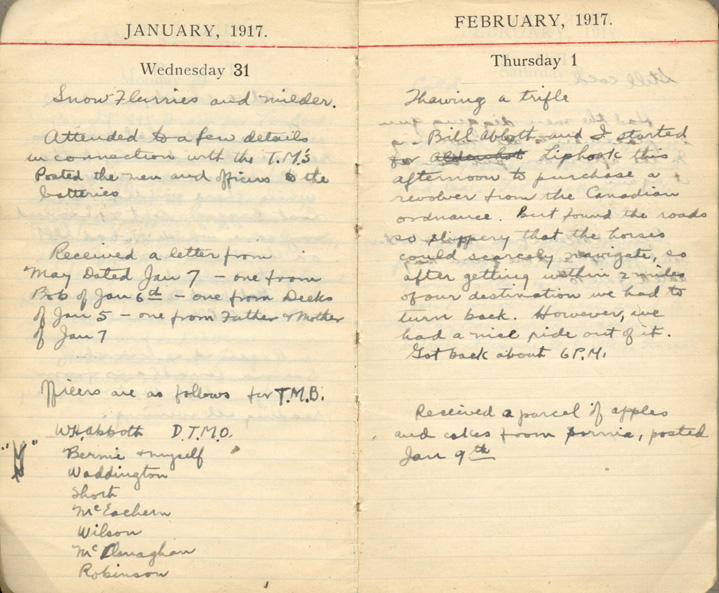 JANUARY, 1917.
Wednesday 31
Snow Flurries and milder.
Attended to a few details
in connection with the T.M's
Posted the men and officers to the
batteries
Received a letter from
May Dated Jan 7 – one from
Bob of Jan 6th – one from Deeks
of Jan 5 – one from Father & Mother
of Jan 7
Officers are as follows for T.M.B.
W.H. Abbott D.T.M.O.
"Y" Bernie & myself
Waddington
Short
McEachern
Wilson
McClenaghan
Robinson
FEBRUARY, 1917.
Thursday 1
Still cold
Thawing a trifle
Bill Abbott and I started
for Aldershot Liphook this
afternoon to purchase a
revolver from the Canadian
ordnance. But found the roads
so slippery that the horses
could scarcely navigate, so
after getting within 2 miles
of our destination we had to
turn back. However, we
had a nice ride out of it.
Got back about 6 P.M.
Received a parcel of apples
and cakes from Sarnia, posted
Jan 9th